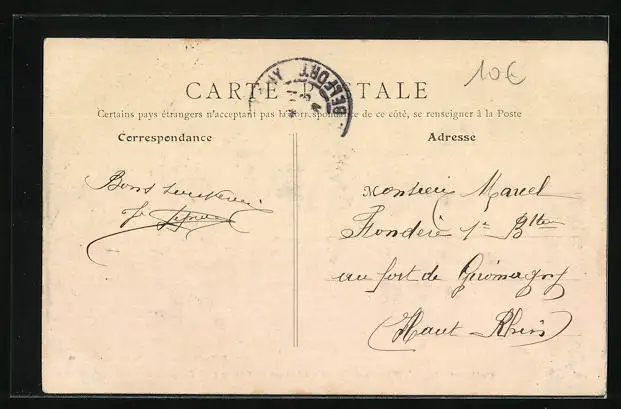 10€
BELFORT
CARTE POSTALE
Certains pays étrangers n'acceptant pas la correspondance de ce côté, se renseigner à la Poste
Correspondance
Adresse
Bons souvenirs
Monsieur Marcel
1re Btterie
au fort de Giromagny
(Haut-Rhin)